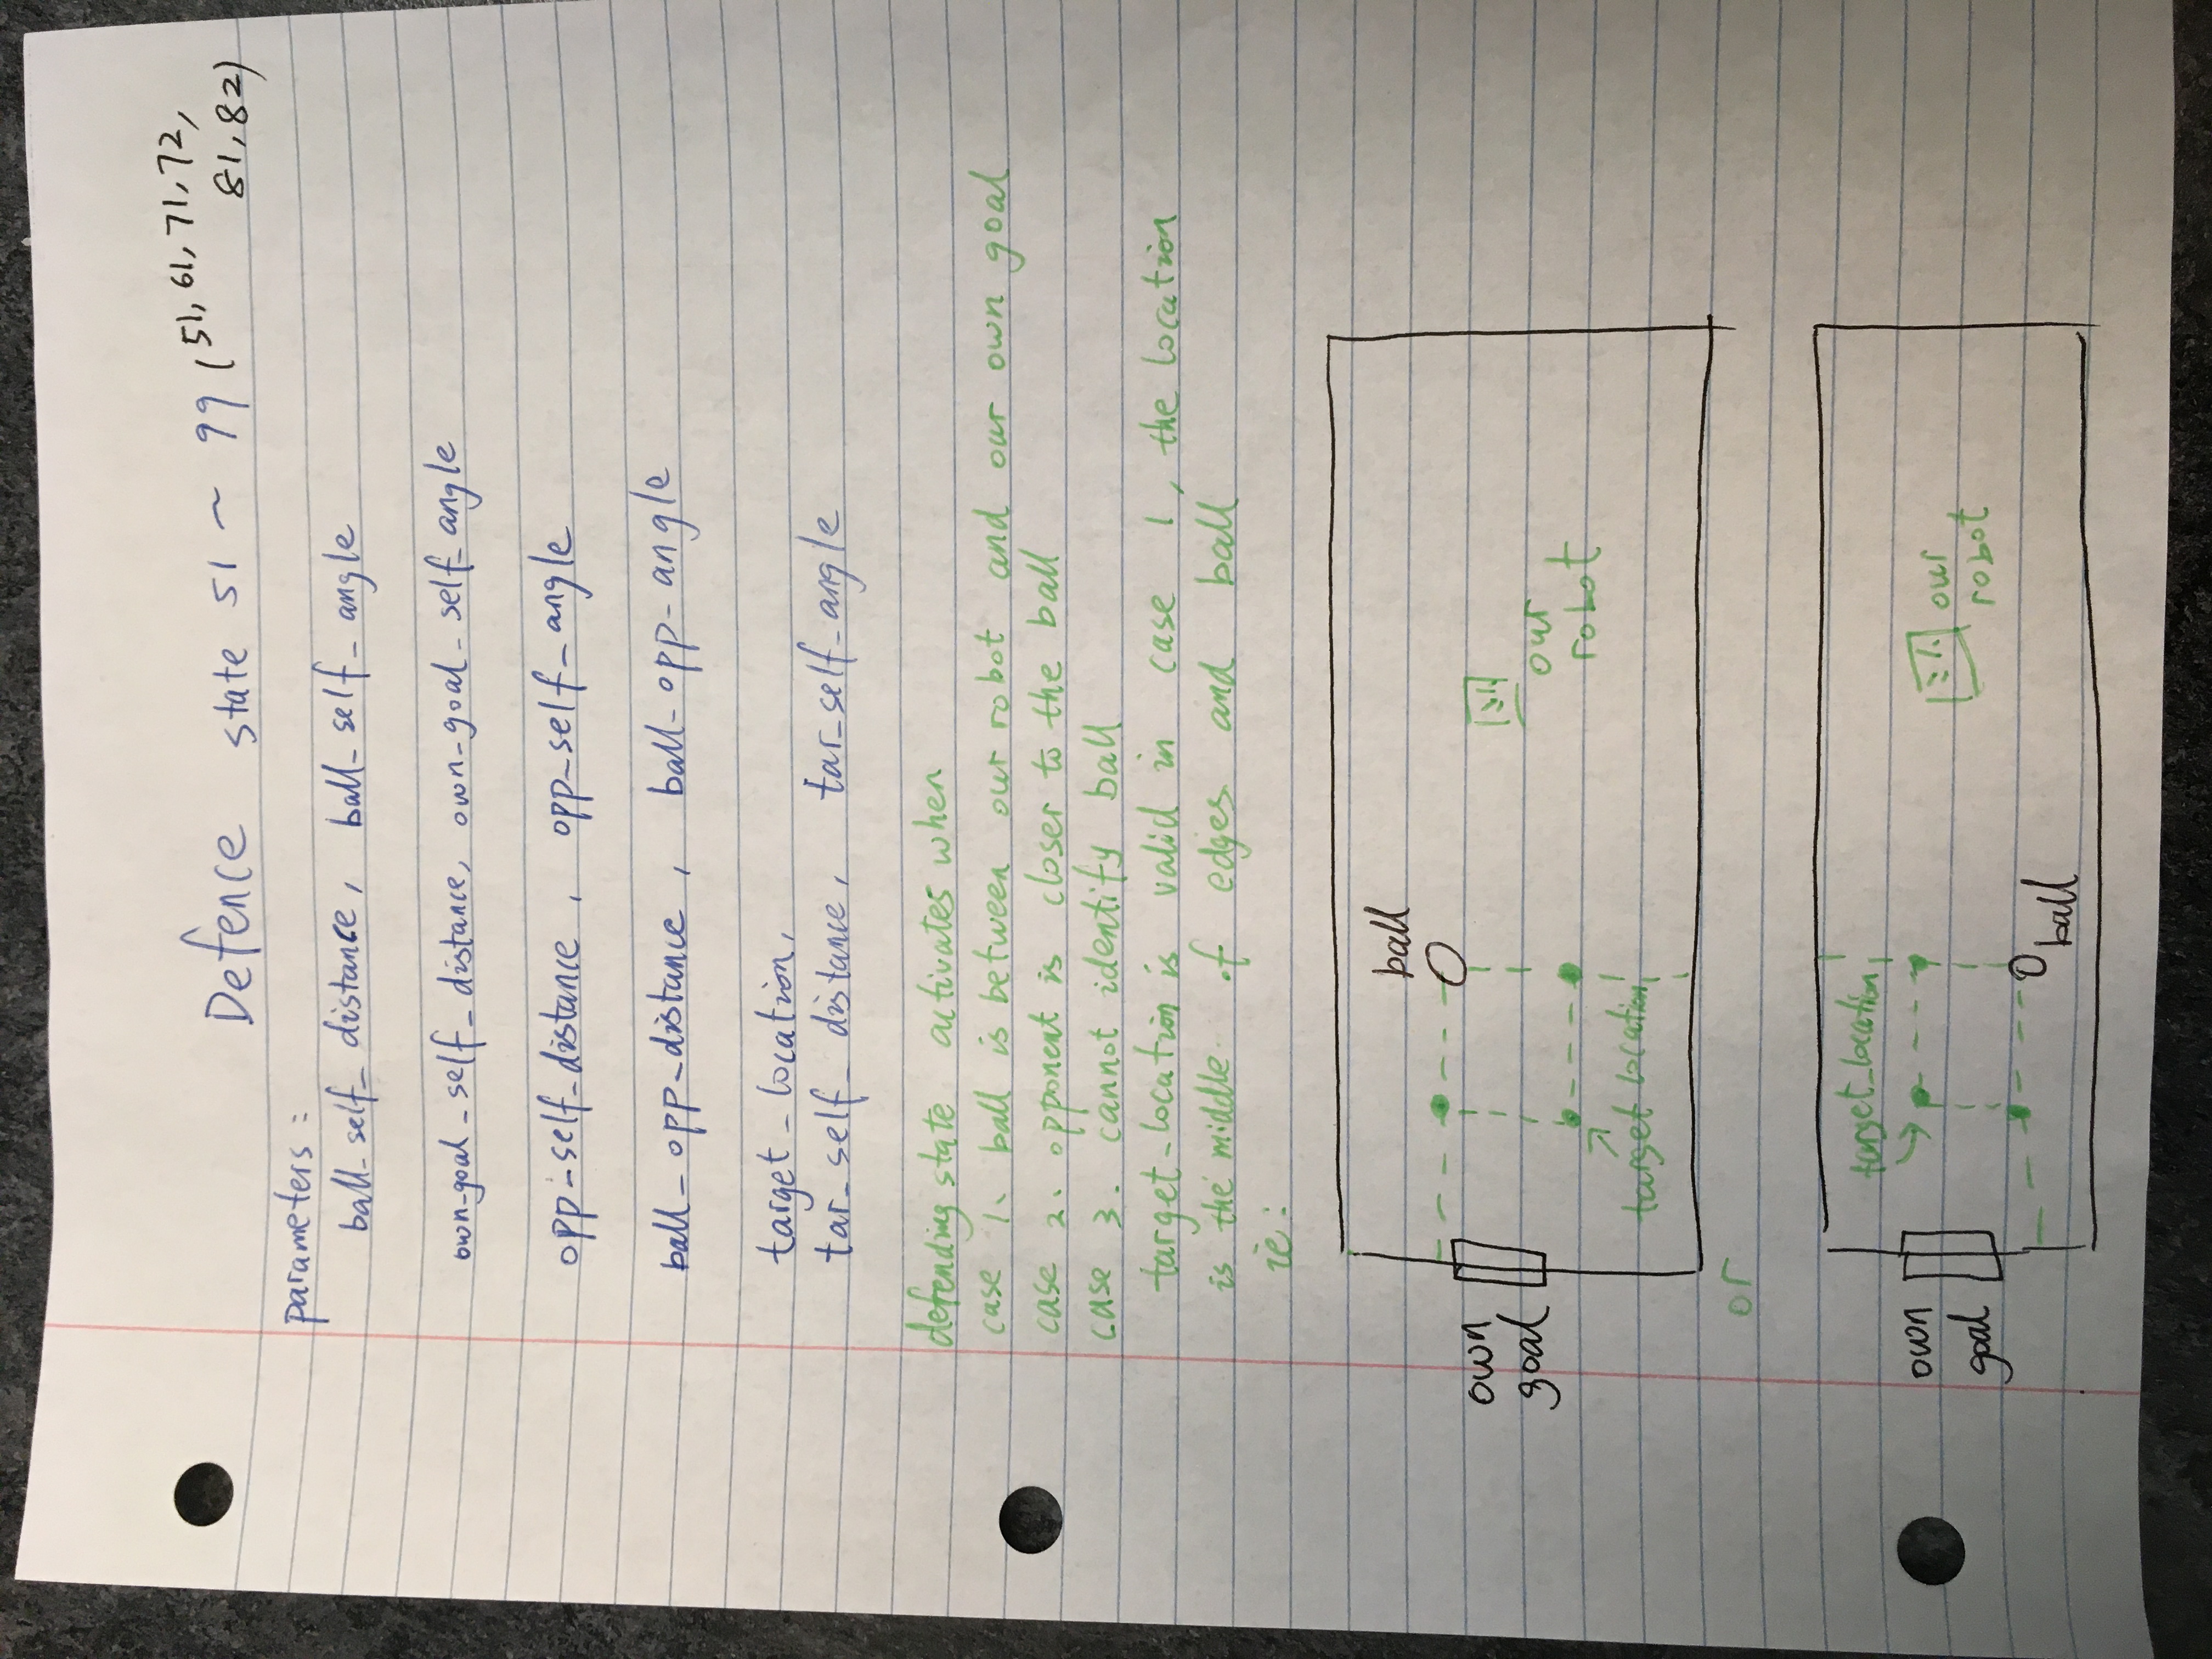 Defence state 51 ~ 99 (51, 61, 71, 72,
81, 82)
parameters:
ball_self_distance, ball_self_angle
own-goal_self_distance, own-goal_self_angle
opp_self_distance, opp_self_angle
ball_opp_distance, ball_opp_angle
target_location,
tar_self_distance, tar_self_angle
defending state activates when
case 1. ball is between our robot and our own goal
case 2. opponent is closer to the ball
case 3. cannot identify ball
target_location is valid in case 1, the location
is the middle of edges and ball
ie:
ball
own
goal
our
robot
target location
or
target_location
own
goal
our
robot
ball